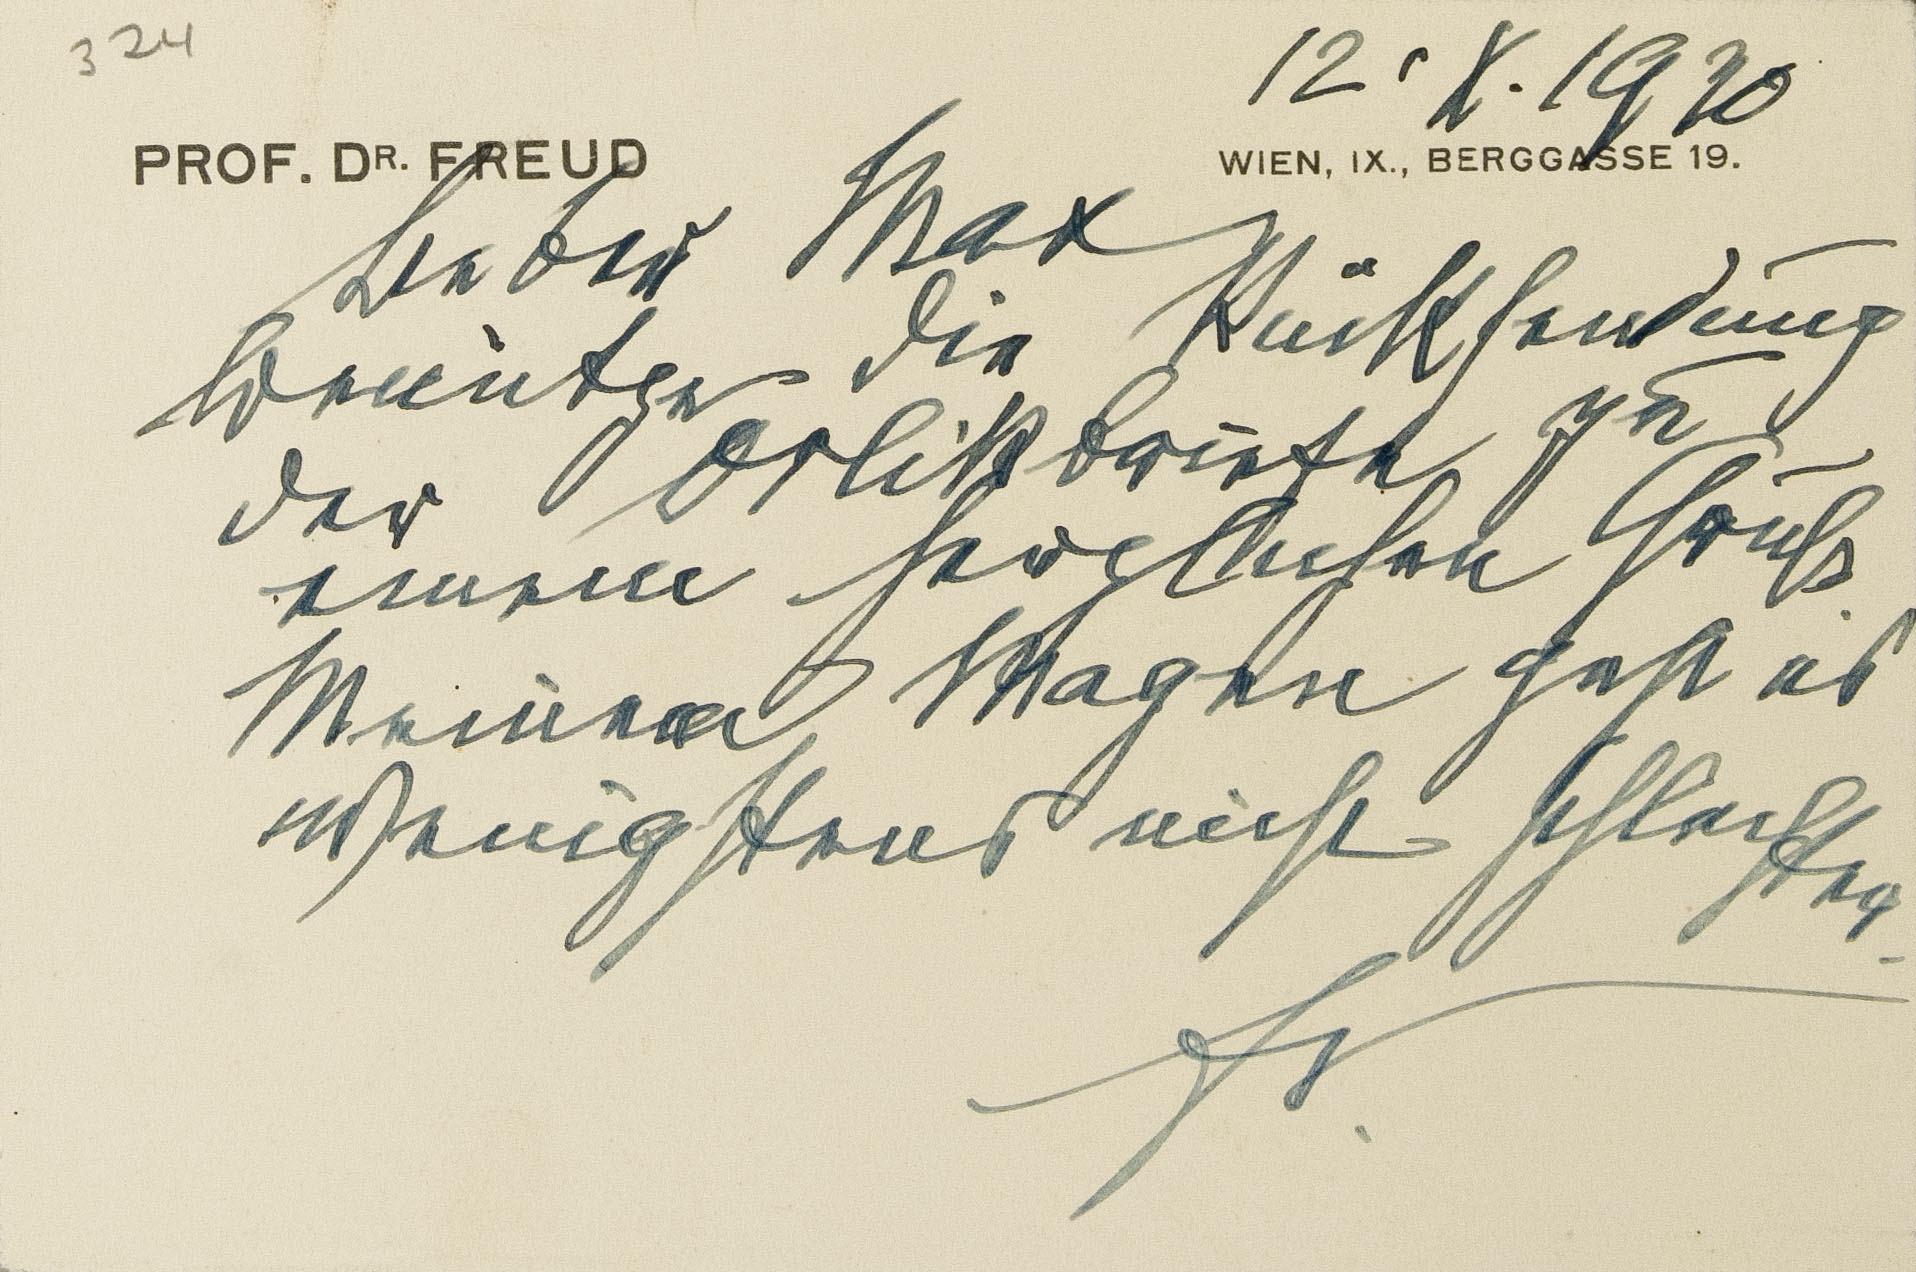 324
12. X. 1930
PROF. DR. FREUD
WIEN, IX., BERGGASSE 19.
Lieber Max
Benütze die Rücksendung
der Orlikbriefe zu
einem herzlichen Gruß.
Meinem Magen geht es
wenigstens nicht schlech
ter.
Fr.